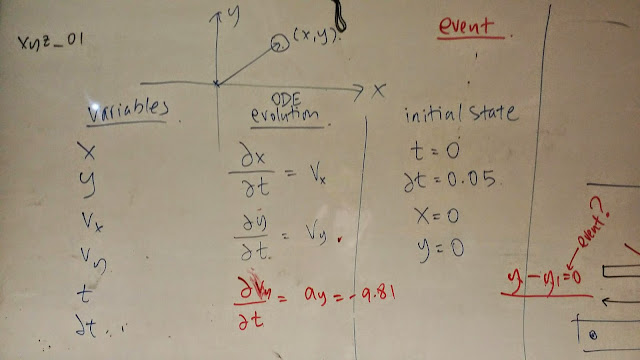 xyz_01
y
(x,y)
x
event
variables
x
y
Vx
Vy
t
∂t
ODE
evolution
∂x/∂t = Vx
∂y/∂t = Vy
∂Vy/∂t = ay = -9.81
initial state
t = 0
∂t = 0.05
x = 0
y = 0
event?
y - y1 = 0